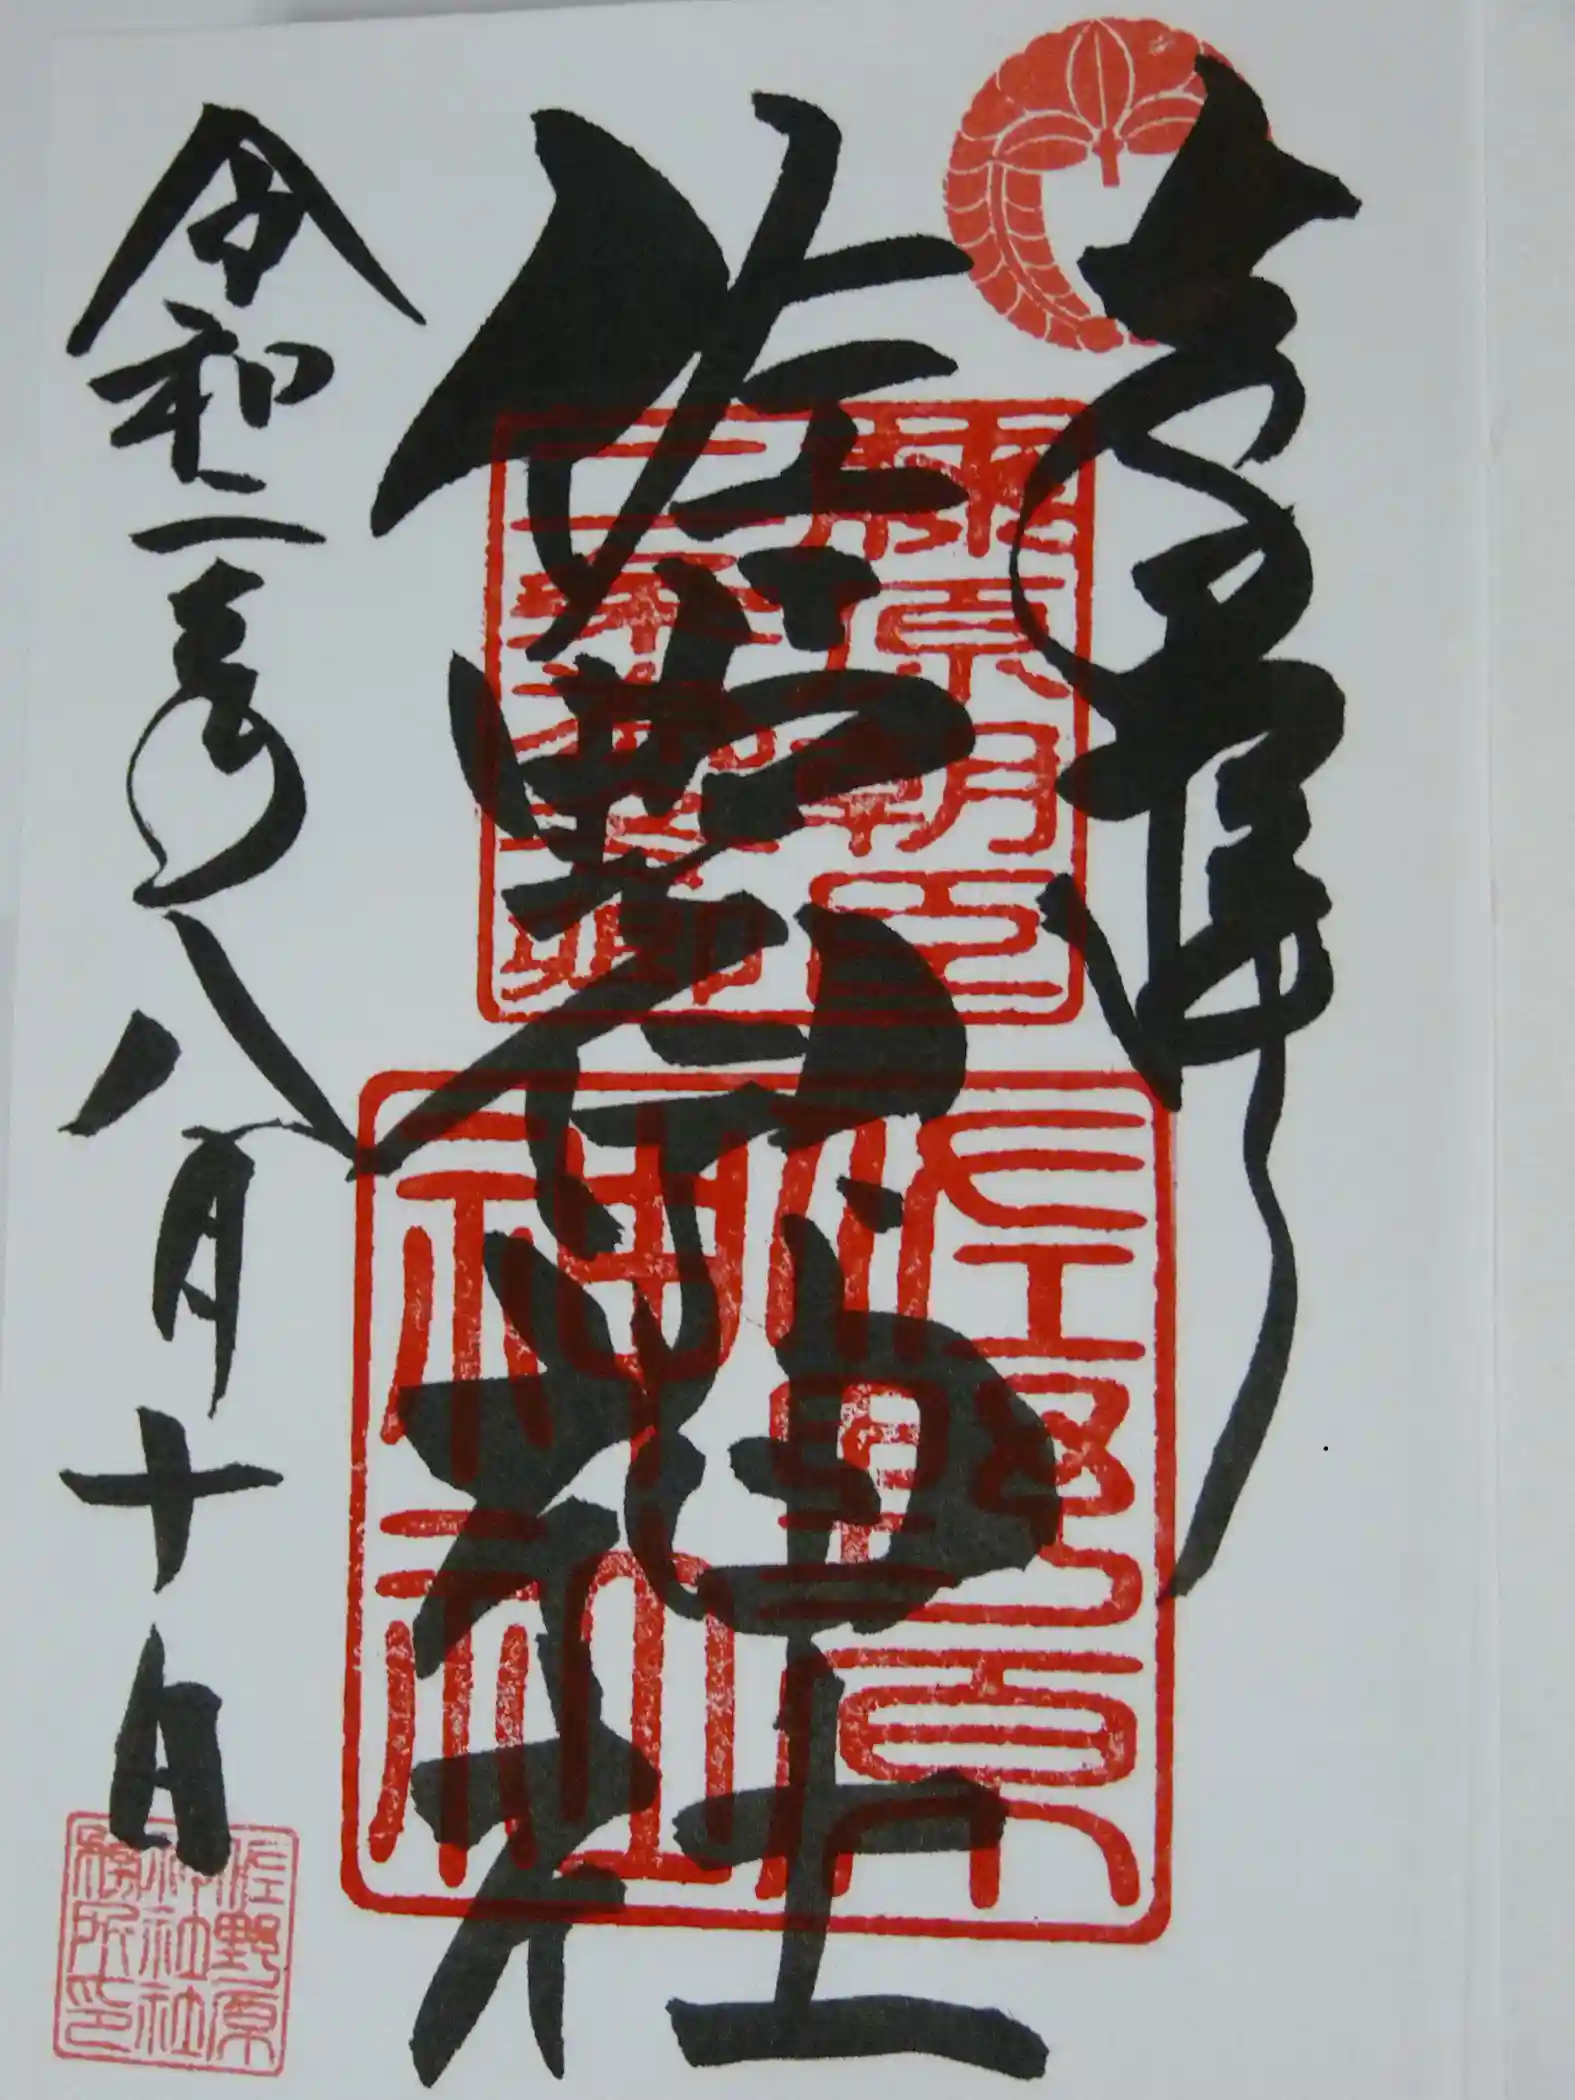 奉拝
佐野原神社
令和二年八月十日
藤原朝臣
佐野原
神社
佐野原
神社社
務所印